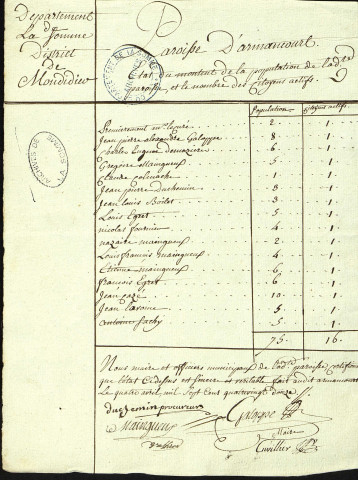 Departement
de
La Somme
District
de
Mondidier
Paroisse D'armancourt
Etat du montant de la population de lad.
paroisse, et le nombre des citoyens actifs.
Population citoyens actifs
Premierement mr 2 1
Jean pierre alexandre Galoppe 8 1
charles Eugene 6 1
Gregoire Maingueux 5 1
Claude 1 1
Jean pierre Duchemin 3 1
Jean Louis Boitel 3 1
Louis Egret 5 1
nicolas fournier 4 1
nazaire maingueux 2 1
Louis francois maingueux 4 1
Etienne maingueux 6 1
francois Egret 6 1
Jean caze 10 1
Jean 5 1
antoine fachy 5 1
75 16
Nous maire et officiers municipaux de lad. paroisse certifions
que l'état cy dessus est sincere et veritable fait audit armancourt
Le quatre avril mil sept Cent quatrevingt douze
duchemin procureur Galoppe
Maingueux Maire
Cuvillier